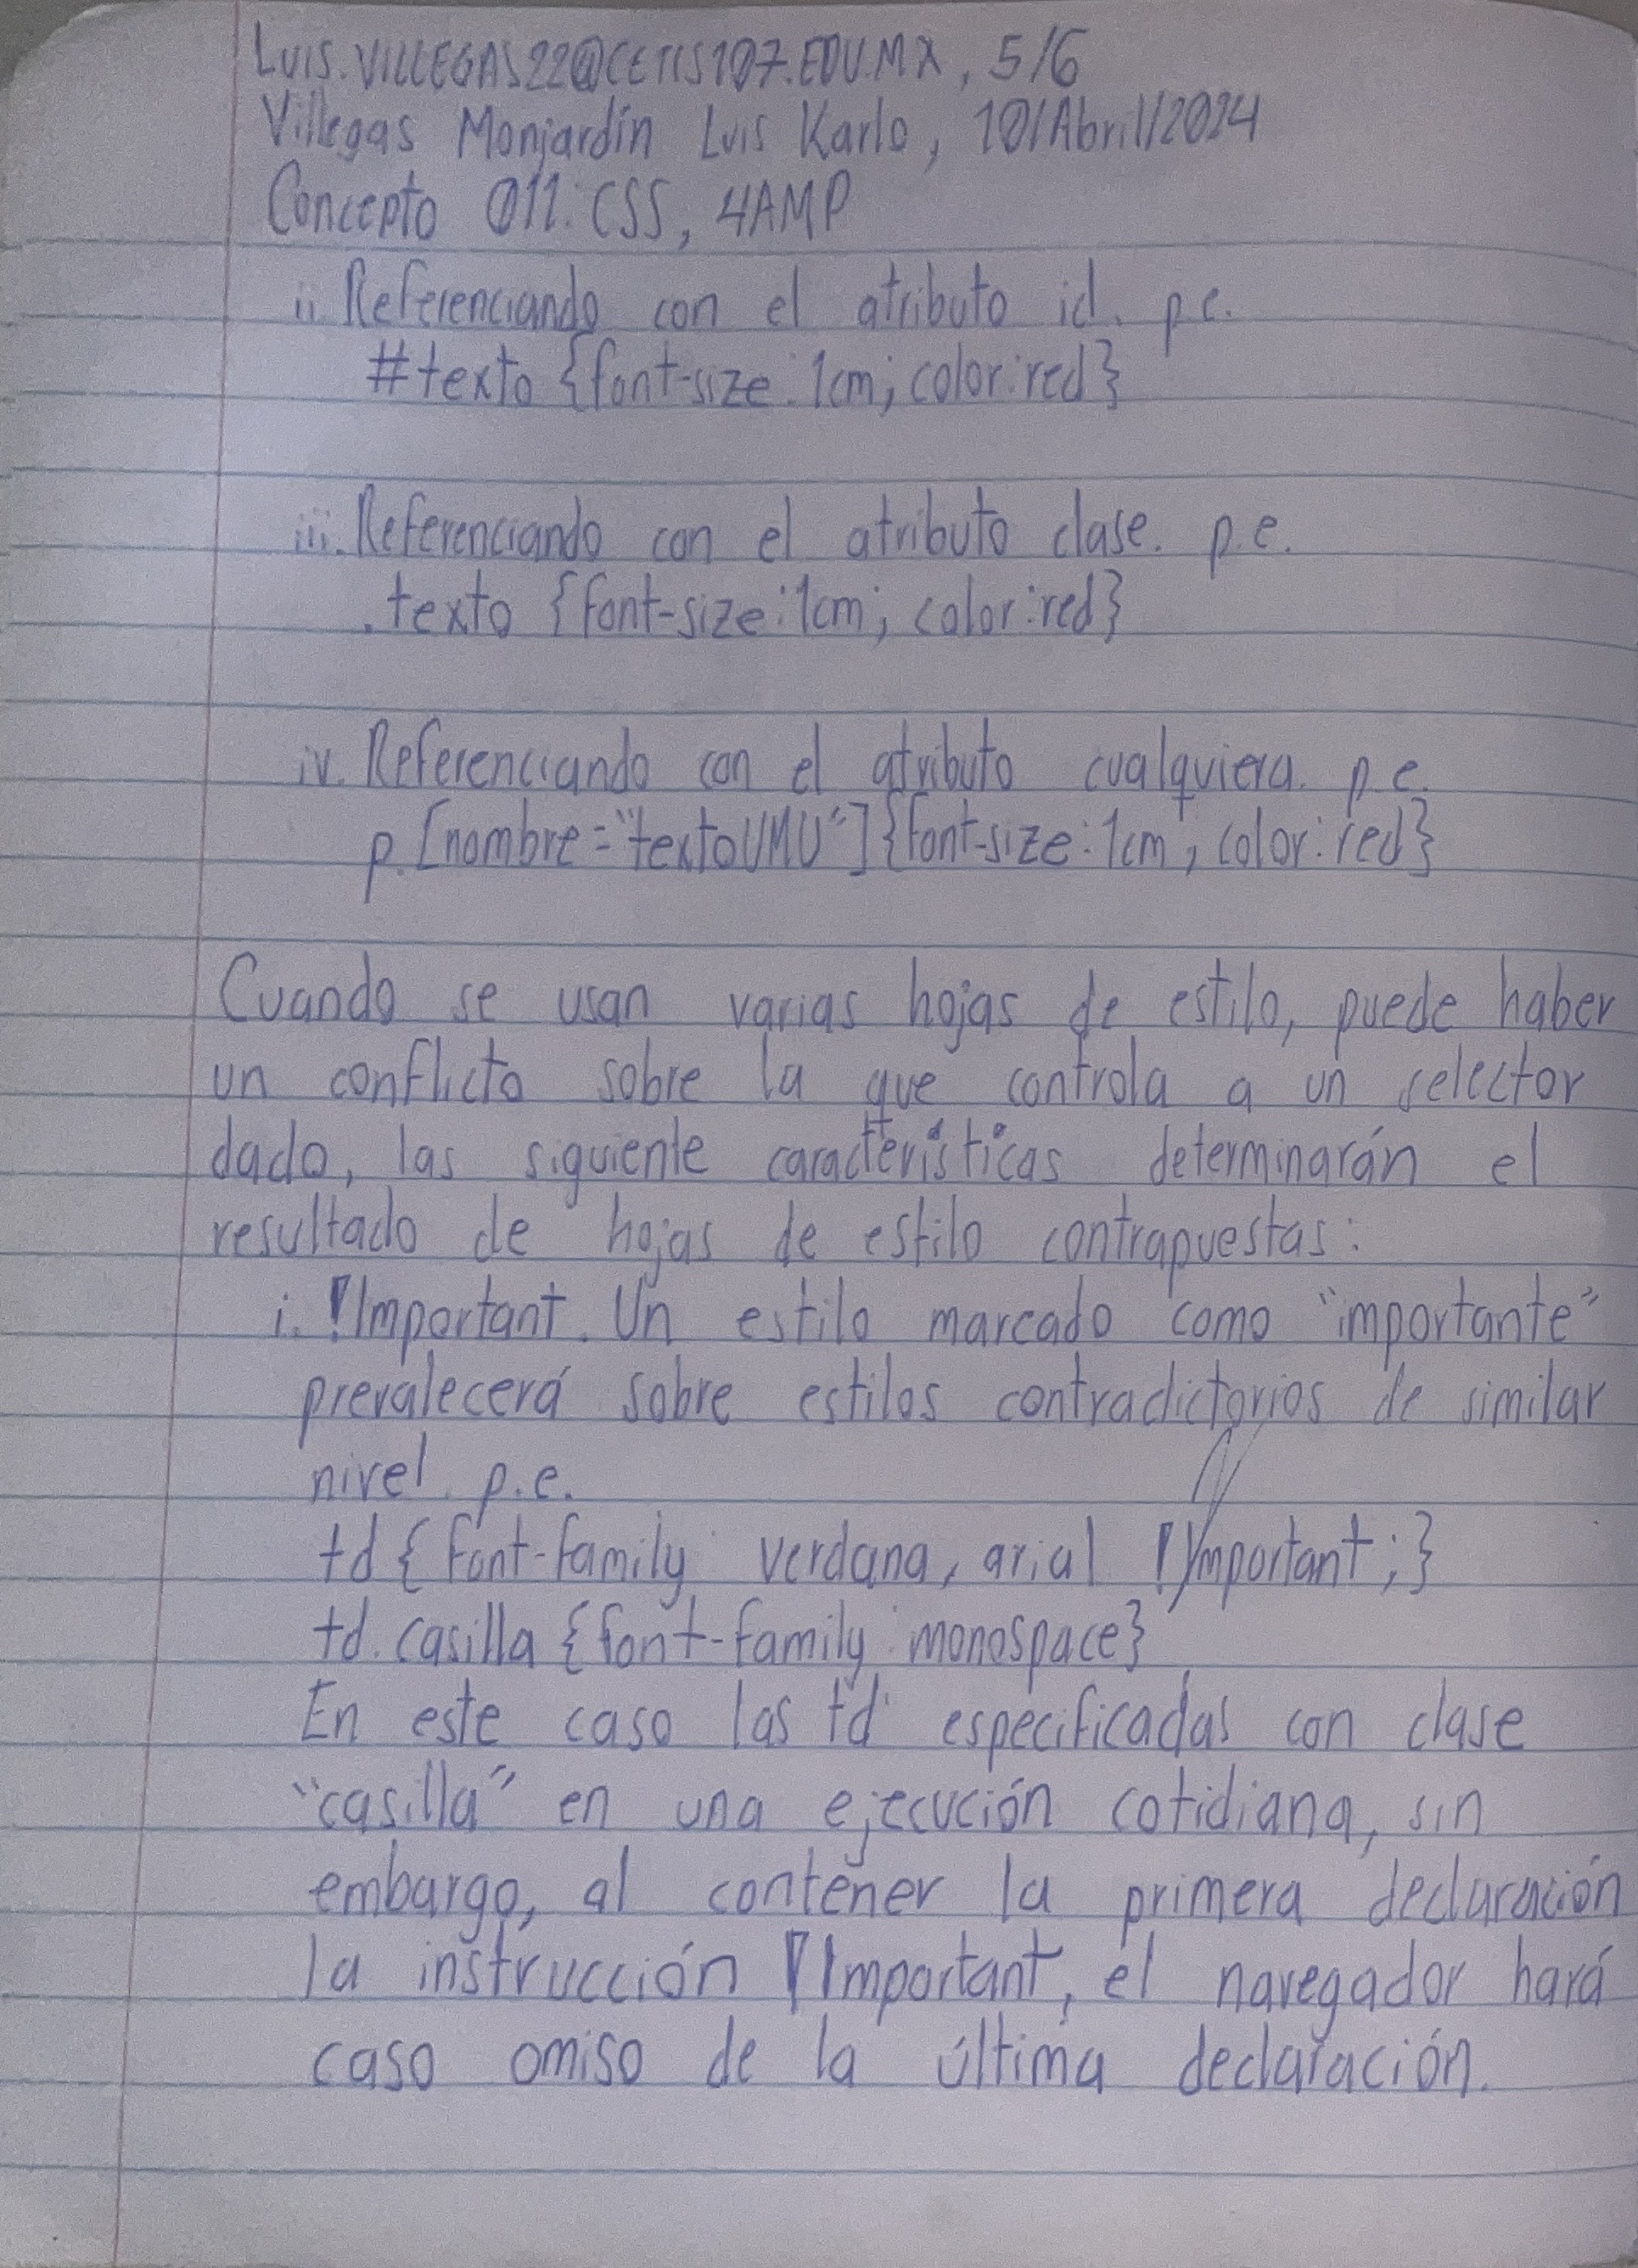 LUIS.VILLEGAS22@CETIS107.EDU.MX, 5/6
Villegas Monjardín Luis Karlo, 10/Abril/2024
Concepto 011: CSS, 4AMP
ii. Referenciando con el atributo id. p.e.
#texto {font-size:1cm; color:red}
iii. Referenciando con el atributo clase. p.e.
.texto {font-size:1cm; color:red}
iv. Referenciando con el atributo cualquiera. p.e.
p.[nombre="textoUMU"]{font-size:1cm; color:red}
Cuando se usan varias hojas de estilo, puede haber
un conflicto sobre la que controla a un selector
dado, las siguiente características determinarán el
resultado de hojas de estilo contrapuestas:
i. !Important. Un estilo marcado como "importante"
prevalecerá sobre estilos contradictorios de similar
nivel. p.e.
td {font-family verdana, arial !Important;}
td.casilla {font-family:monospace}
En este caso las td especificadas con clase
"casilla" en una ejecución cotidiana, sin
embargo, al contener la primera declaración
la instrucción !Important, el navegador hará
caso omiso de la última declaración.